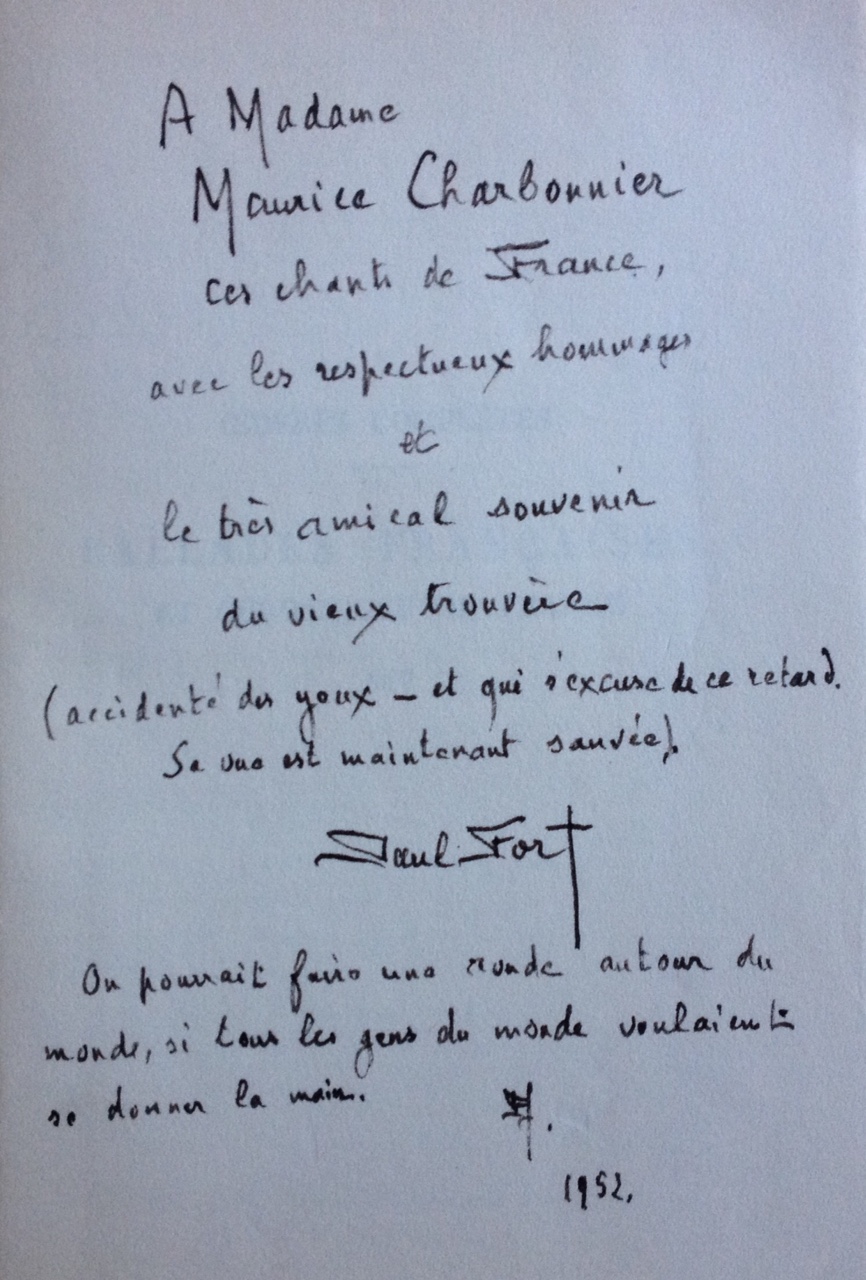 A Madame
Maurice Charbonnier
ces chants de France,
avec les respectueux hommages
et
le très amical souvenir
du vieux trouvère
(accidenté des yeux — et qui s'excuse de ce retard.
Sa vue est maintenant sauvée).
Paul Fort
On pourrait faire une ronde autour du
monde, si tous les gens du monde voulaient
se donner la main.
1952.